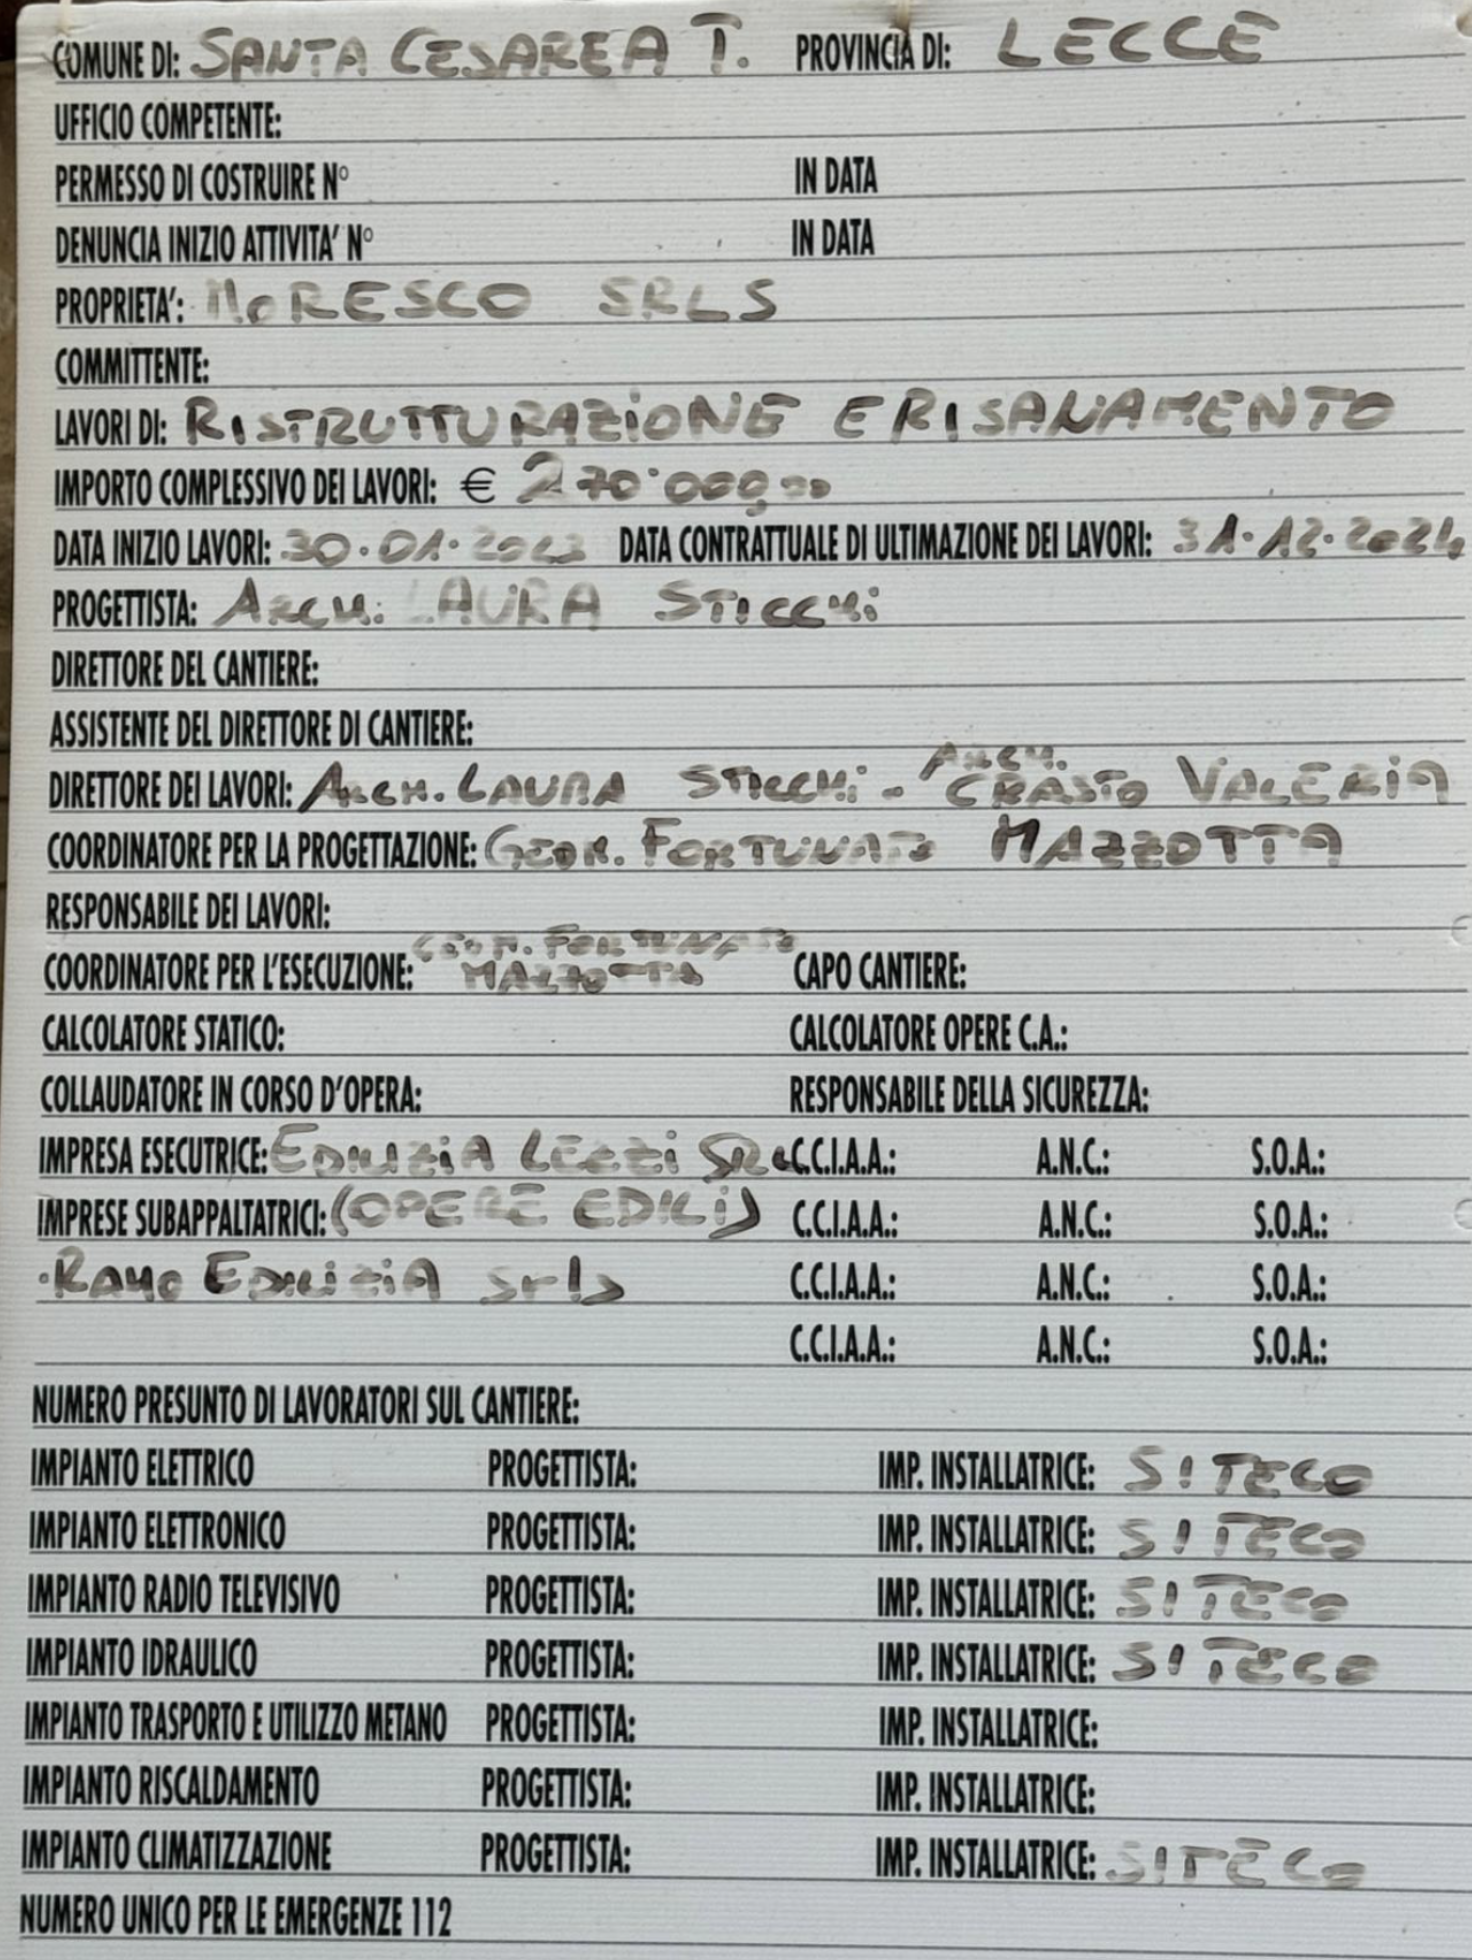 COMUNE DI: SANTA CESAREA T. PROVINCIA DI: LECCE
UFFICIO COMPETENTE:
PERMESSO DI COSTRUIRE N° IN DATA
DENUNCIA INIZIO ATTIVITA' N° IN DATA
PROPRIETA': MORESCO SRLS
COMMITTENTE:
LAVORI DI: RISTRUTTURAZIONE E RISANAMENTO
IMPORTO COMPLESSIVO DEI LAVORI: € 270'000,00
DATA INIZIO LAVORI: 30.01.2023 DATA CONTRATTUALE DI ULTIMAZIONE DEI LAVORI: 31.12.2024
PROGETTISTA: ARCH. LAURA STICCHI
DIRETTORE DEL CANTIERE:
ASSISTENTE DEL DIRETTORE DI CANTIERE:
DIRETTORE DEI LAVORI: ARCH. LAURA STICCHI - ARCH. CRASTO VALERIA
COORDINATORE PER LA PROGETTAZIONE: GEOM. FORTUNATO MAZZOTTA
RESPONSABILE DEI LAVORI:
COORDINATORE PER L'ESECUZIONE: GEOM. FORTUNATO MAZZOTTA CAPO CANTIERE:
CALCOLATORE STATICO: CALCOLATORE OPERE C.A.:
COLLAUDATORE IN CORSO D'OPERA: RESPONSABILE DELLA SICUREZZA:
IMPRESA ESECUTRICE: EDILIZIA LEZZI SRL C.C.I.A.A.: A.N.C.: S.O.A.:
IMPRESE SUBAPPALTATRICI: (OPERE EDILI) C.C.I.A.A.: A.N.C.: S.O.A.:
·RAMO EDILIZIA srls C.C.I.A.A.: A.N.C.: S.O.A.:
C.C.I.A.A.: A.N.C.: S.O.A.:
NUMERO PRESUNTO DI LAVORATORI SUL CANTIERE:
IMPIANTO ELETTRICO PROGETTISTA: IMP. INSTALLATRICE: SITECO
IMPIANTO ELETTRONICO PROGETTISTA: IMP. INSTALLATRICE: SITECO
IMPIANTO RADIO TELEVISIVO PROGETTISTA: IMP. INSTALLATRICE: SITECO
IMPIANTO IDRAULICO PROGETTISTA: IMP. INSTALLATRICE: SITECO
IMPIANTO TRASPORTO E UTILIZZO METANO PROGETTISTA: IMP. INSTALLATRICE:
IMPIANTO RISCALDAMENTO PROGETTISTA: IMP. INSTALLATRICE:
IMPIANTO CLIMATIZZAZIONE PROGETTISTA: IMP. INSTALLATRICE: SITECO
NUMERO UNICO PER LE EMERGENZE 112